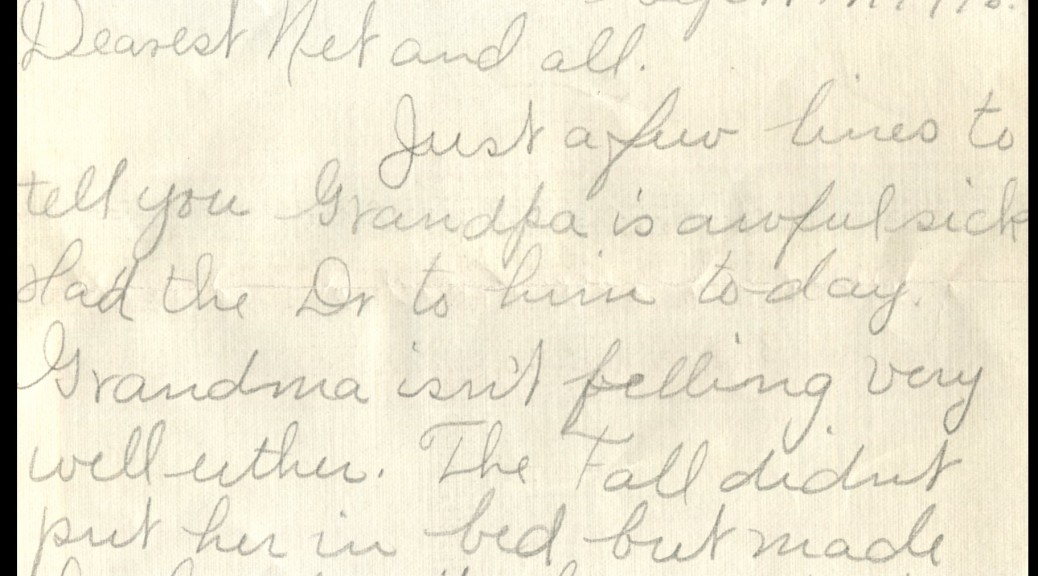 Dearest Net and all.
Just a few lines to
tell you Grandpa is awful sick
Had the Dr to him to-day.
Grandma isn't felling very
well either. The Fall didn't
put her in bed but made